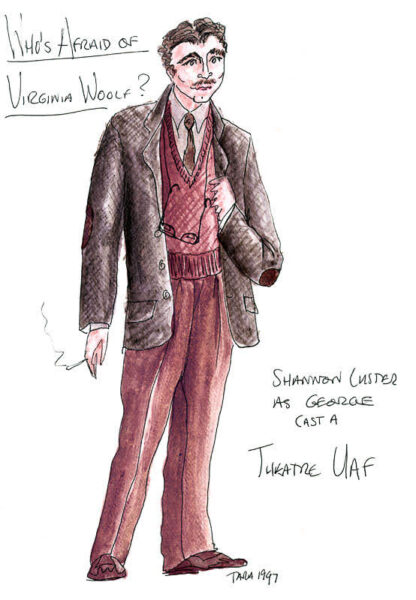 WHO'S AFRAID OF
VIRGINIA WOOLF?
SHANNON LUSTER
AS GEORGE
CAST A
THEATRE UAF
TARA 1997